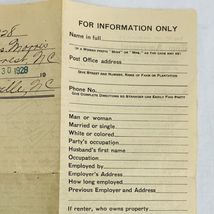 28
Morris
Forest, N.C.
30 1928
ville, N.C.
FOR INFORMATION ONLY
Name in full
(IF A WOMAN PREFIX "MISS" OR "MRS." AS THE CASE MAY BE)
Post Office address
GIVE STREET AND NUMBER, NAME OF FARM OR PLANTATION
Phone No.
GIVE COMPLETE DIRECTIONS SO STRANGER CAN EASILY FIND PARTY
Man or woman
Married or single
White or colored
Party's occupation
Husband's first name
Occupation
Employed by
Employer's Address
How long employed
Previous Employer and Address
If renter, who owns property